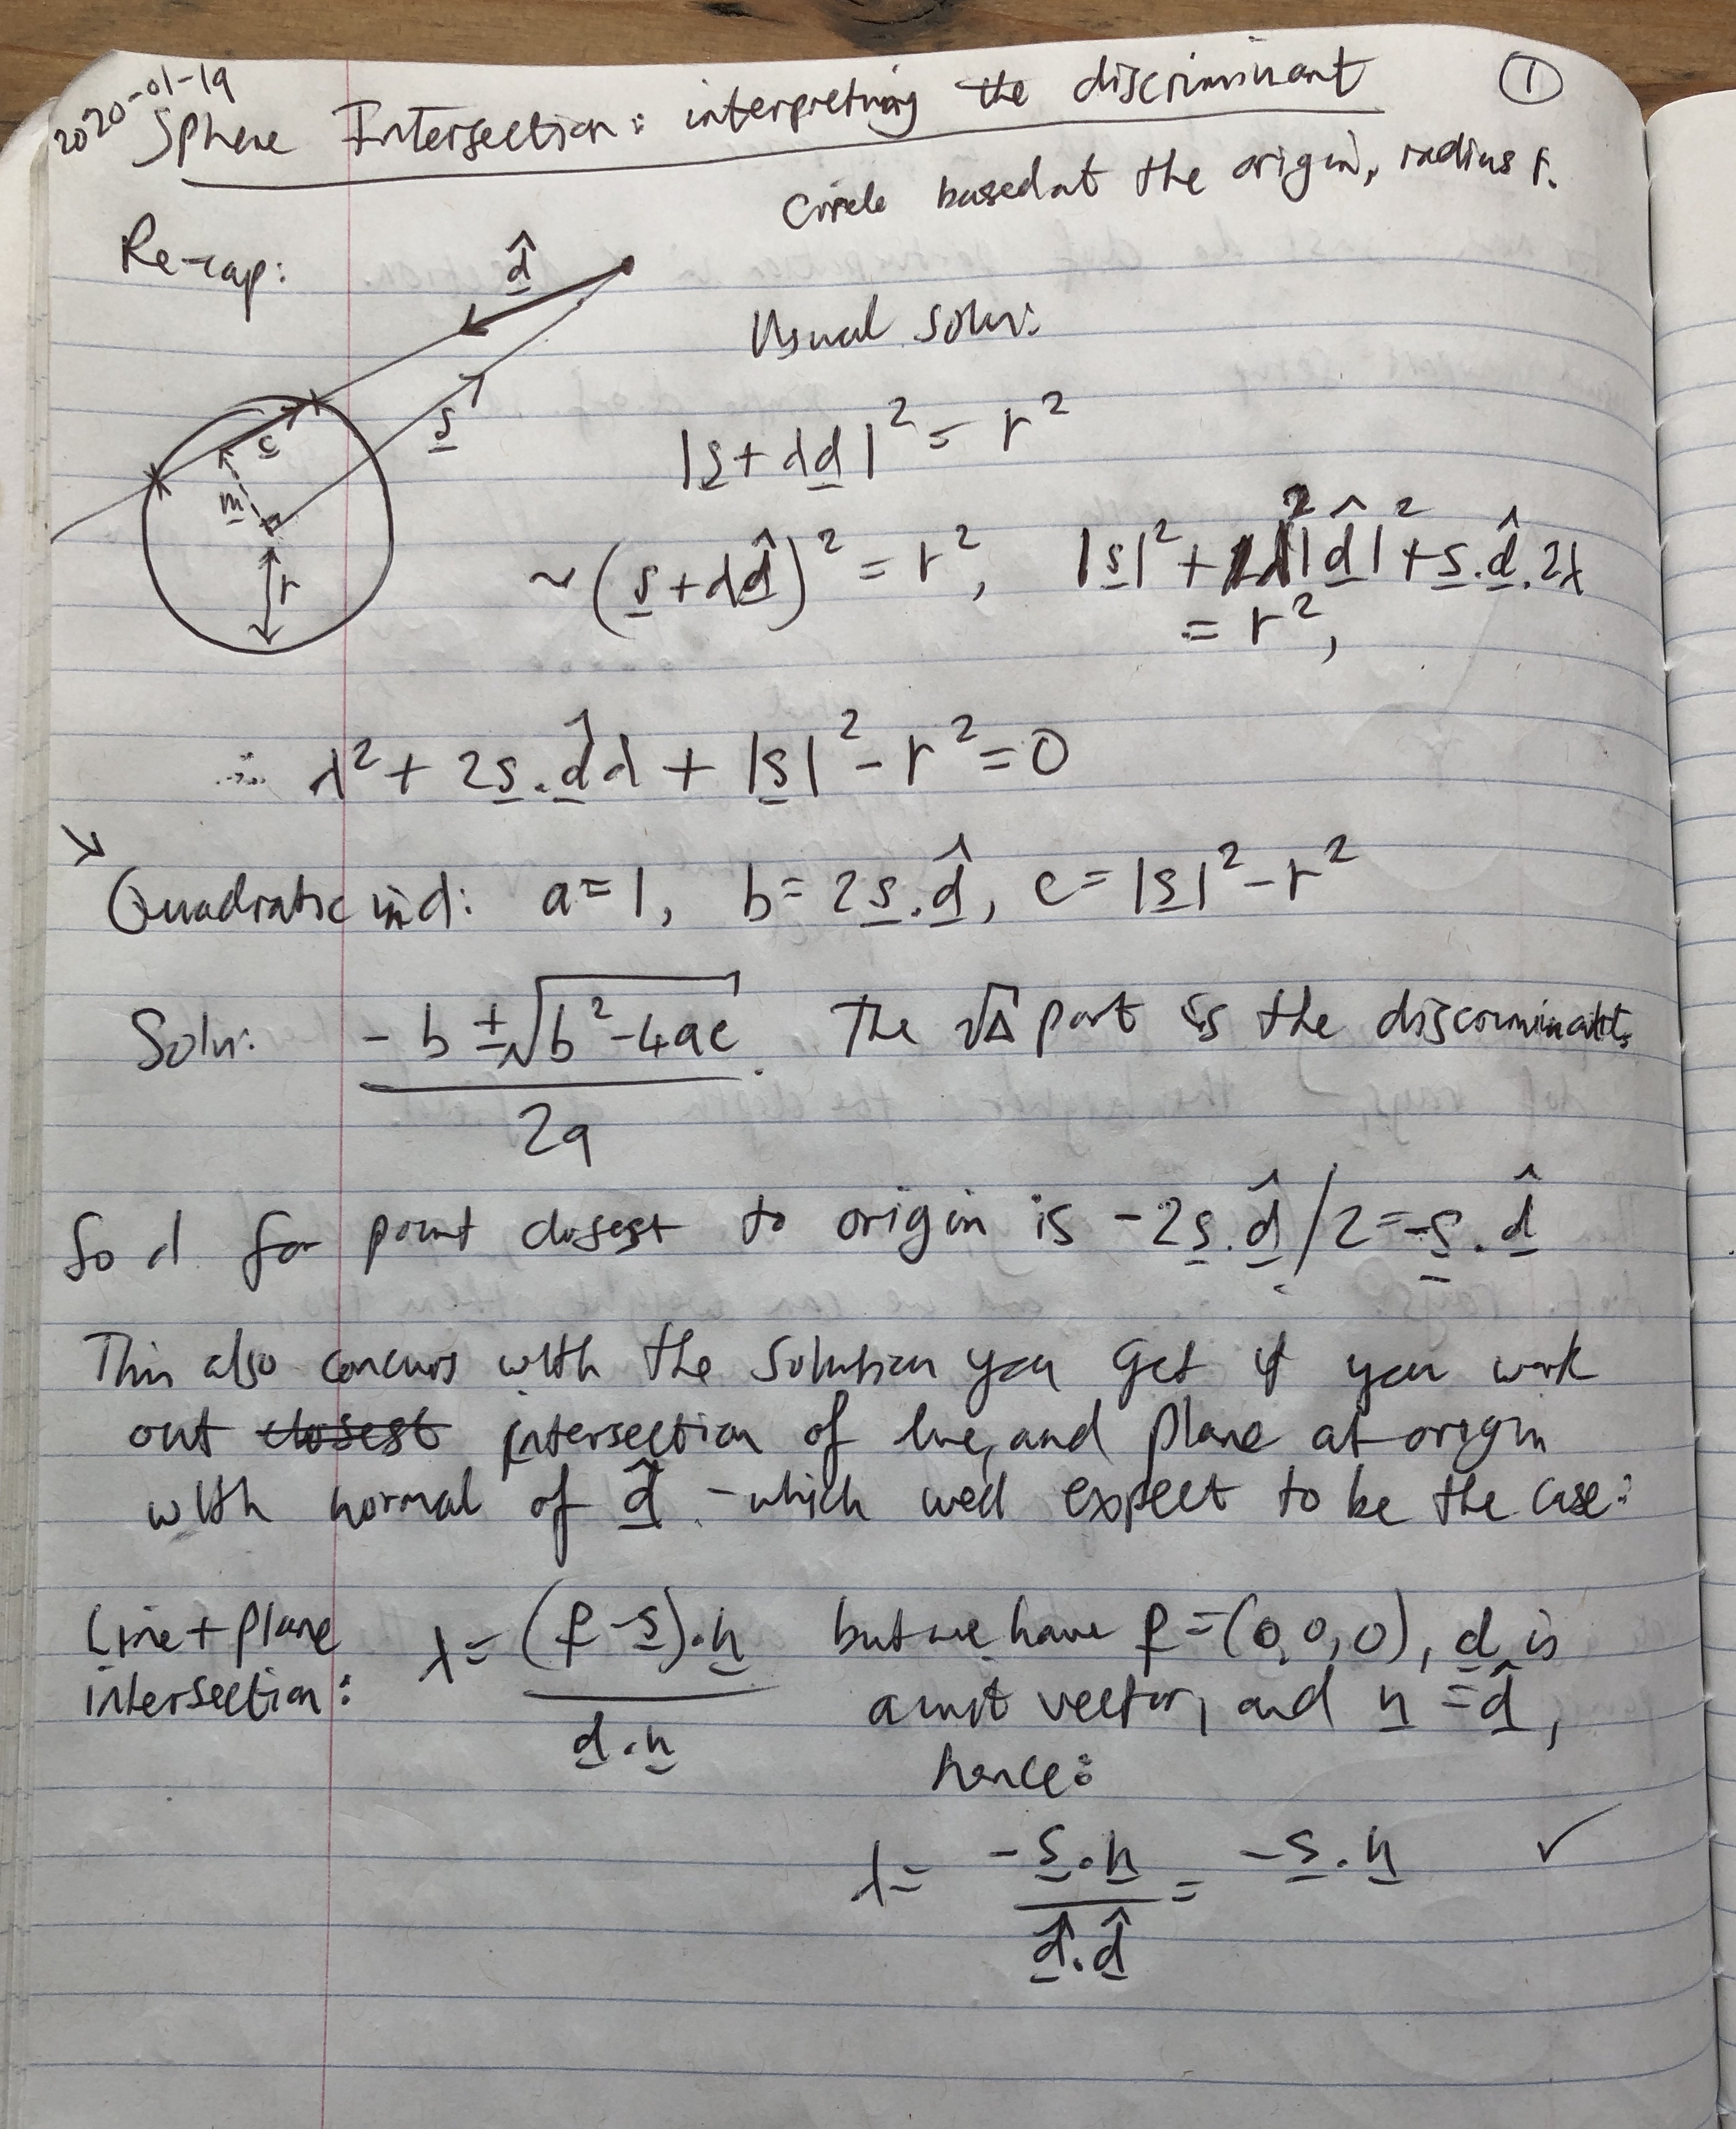 2020-01-19
Sphere Intersection: interpreting the discriminant
①
Circle based at the origin, radius r.
Re-cap:
d̂
s
c
m
r
Usual soln:
|s + λd|² = r²
~ (s + λd̂)² = r², |s|² + λ²|d̂|² + s.d̂.2λ
= r²,
∴ λ² + 2s.d̂λ + |s|² - r² = 0
↘
Quadratic in λ: a=1, b=2s.d̂, c=|s|²-r²
Soln: (-b ± √(b²-4ac)) / 2a. The √Δ part is the discriminant.
So λ for point closest to origin is -2s.d̂/2 = -s.d̂
This also concurs with the solution you get if you work
out closest intersection of line, and plane at origin
with normal of d̂ - which we'd expect to be the case:
Line + plane
intersection:
λ = (p - s).n / d.n
but we have p = (0,0,0), d is
a unit vector, and n = d̂,
hence:
λ = -s.n / d̂.d̂ = -s.n ✓